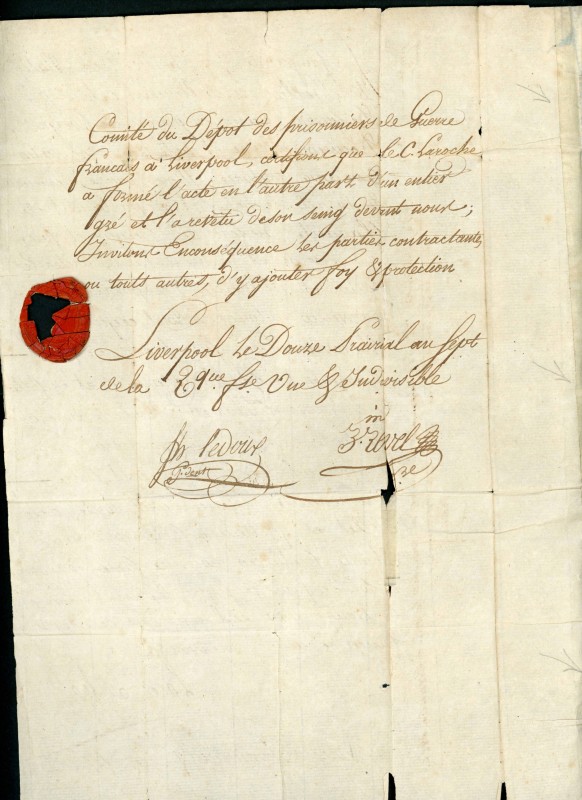 Comité du Dépot des prisonniers de Guerre
francais à Liverpool, certifions que le C. Laroche
a formé l'acte en l'autre part d'un entier
gré et l'a revetu de son seing devant nous;
Invitons Enconséquence les parties contractantes
ou touts autres, d'y ajouter foy & protection
Liverpool le Douze Prairial an Sept
de la Rque. fse Une & Indivisible
Ph ledoux
Pdent